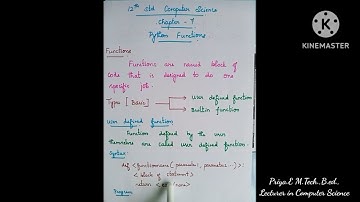 12th Std Computer Science
Chapter - 7
Python Functions
Functions
Functions are named block of
code that is designed to do one
specific job.
Types [Basic]
User defined function
Builtin function
User defined function
Function defined by the users
themselves are called user defined function.
Syntax:
def <functionname (parameter1, parameter2...)>:
<block of statement>
return <
Program
KINEMASTER
Priya.E M.Tech.,B.ed.,
Lecturer in Computer Science